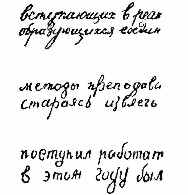 вступающих в реак
образующихся соедин
методы преподава
стараясь извлечь
поступил работат
в этом году был